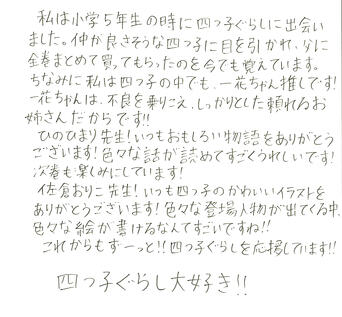 私は小学5年生の時に四つ子ぐらしに出会い
ました。仲が良さそうな四つ子に目を引かれ、父に
全巻まとめて買ってもらったのを今でも覚えています。
ちなみに私は四つ子の中でも、一花ちゃん推しです!
一花ちゃんは、不良を乗りこえ、しっかりとした頼れるお
姉さんだからです!!
ひのひまり先生!いつもおもしろい物語をありがとう
ございます!色々な話が読めてすごくうれしいです!
次巻も楽しみにしています!
佐倉おりこ先生!いつも四つ子のかわいいイラストを
ありがとうございます!色々な登場人物が出てくる中、
色々な絵が書けるなんてすごいですね!!
これからもずーっと!!四つ子ぐらしを応援しています!!
四つ子ぐらし大好き!!